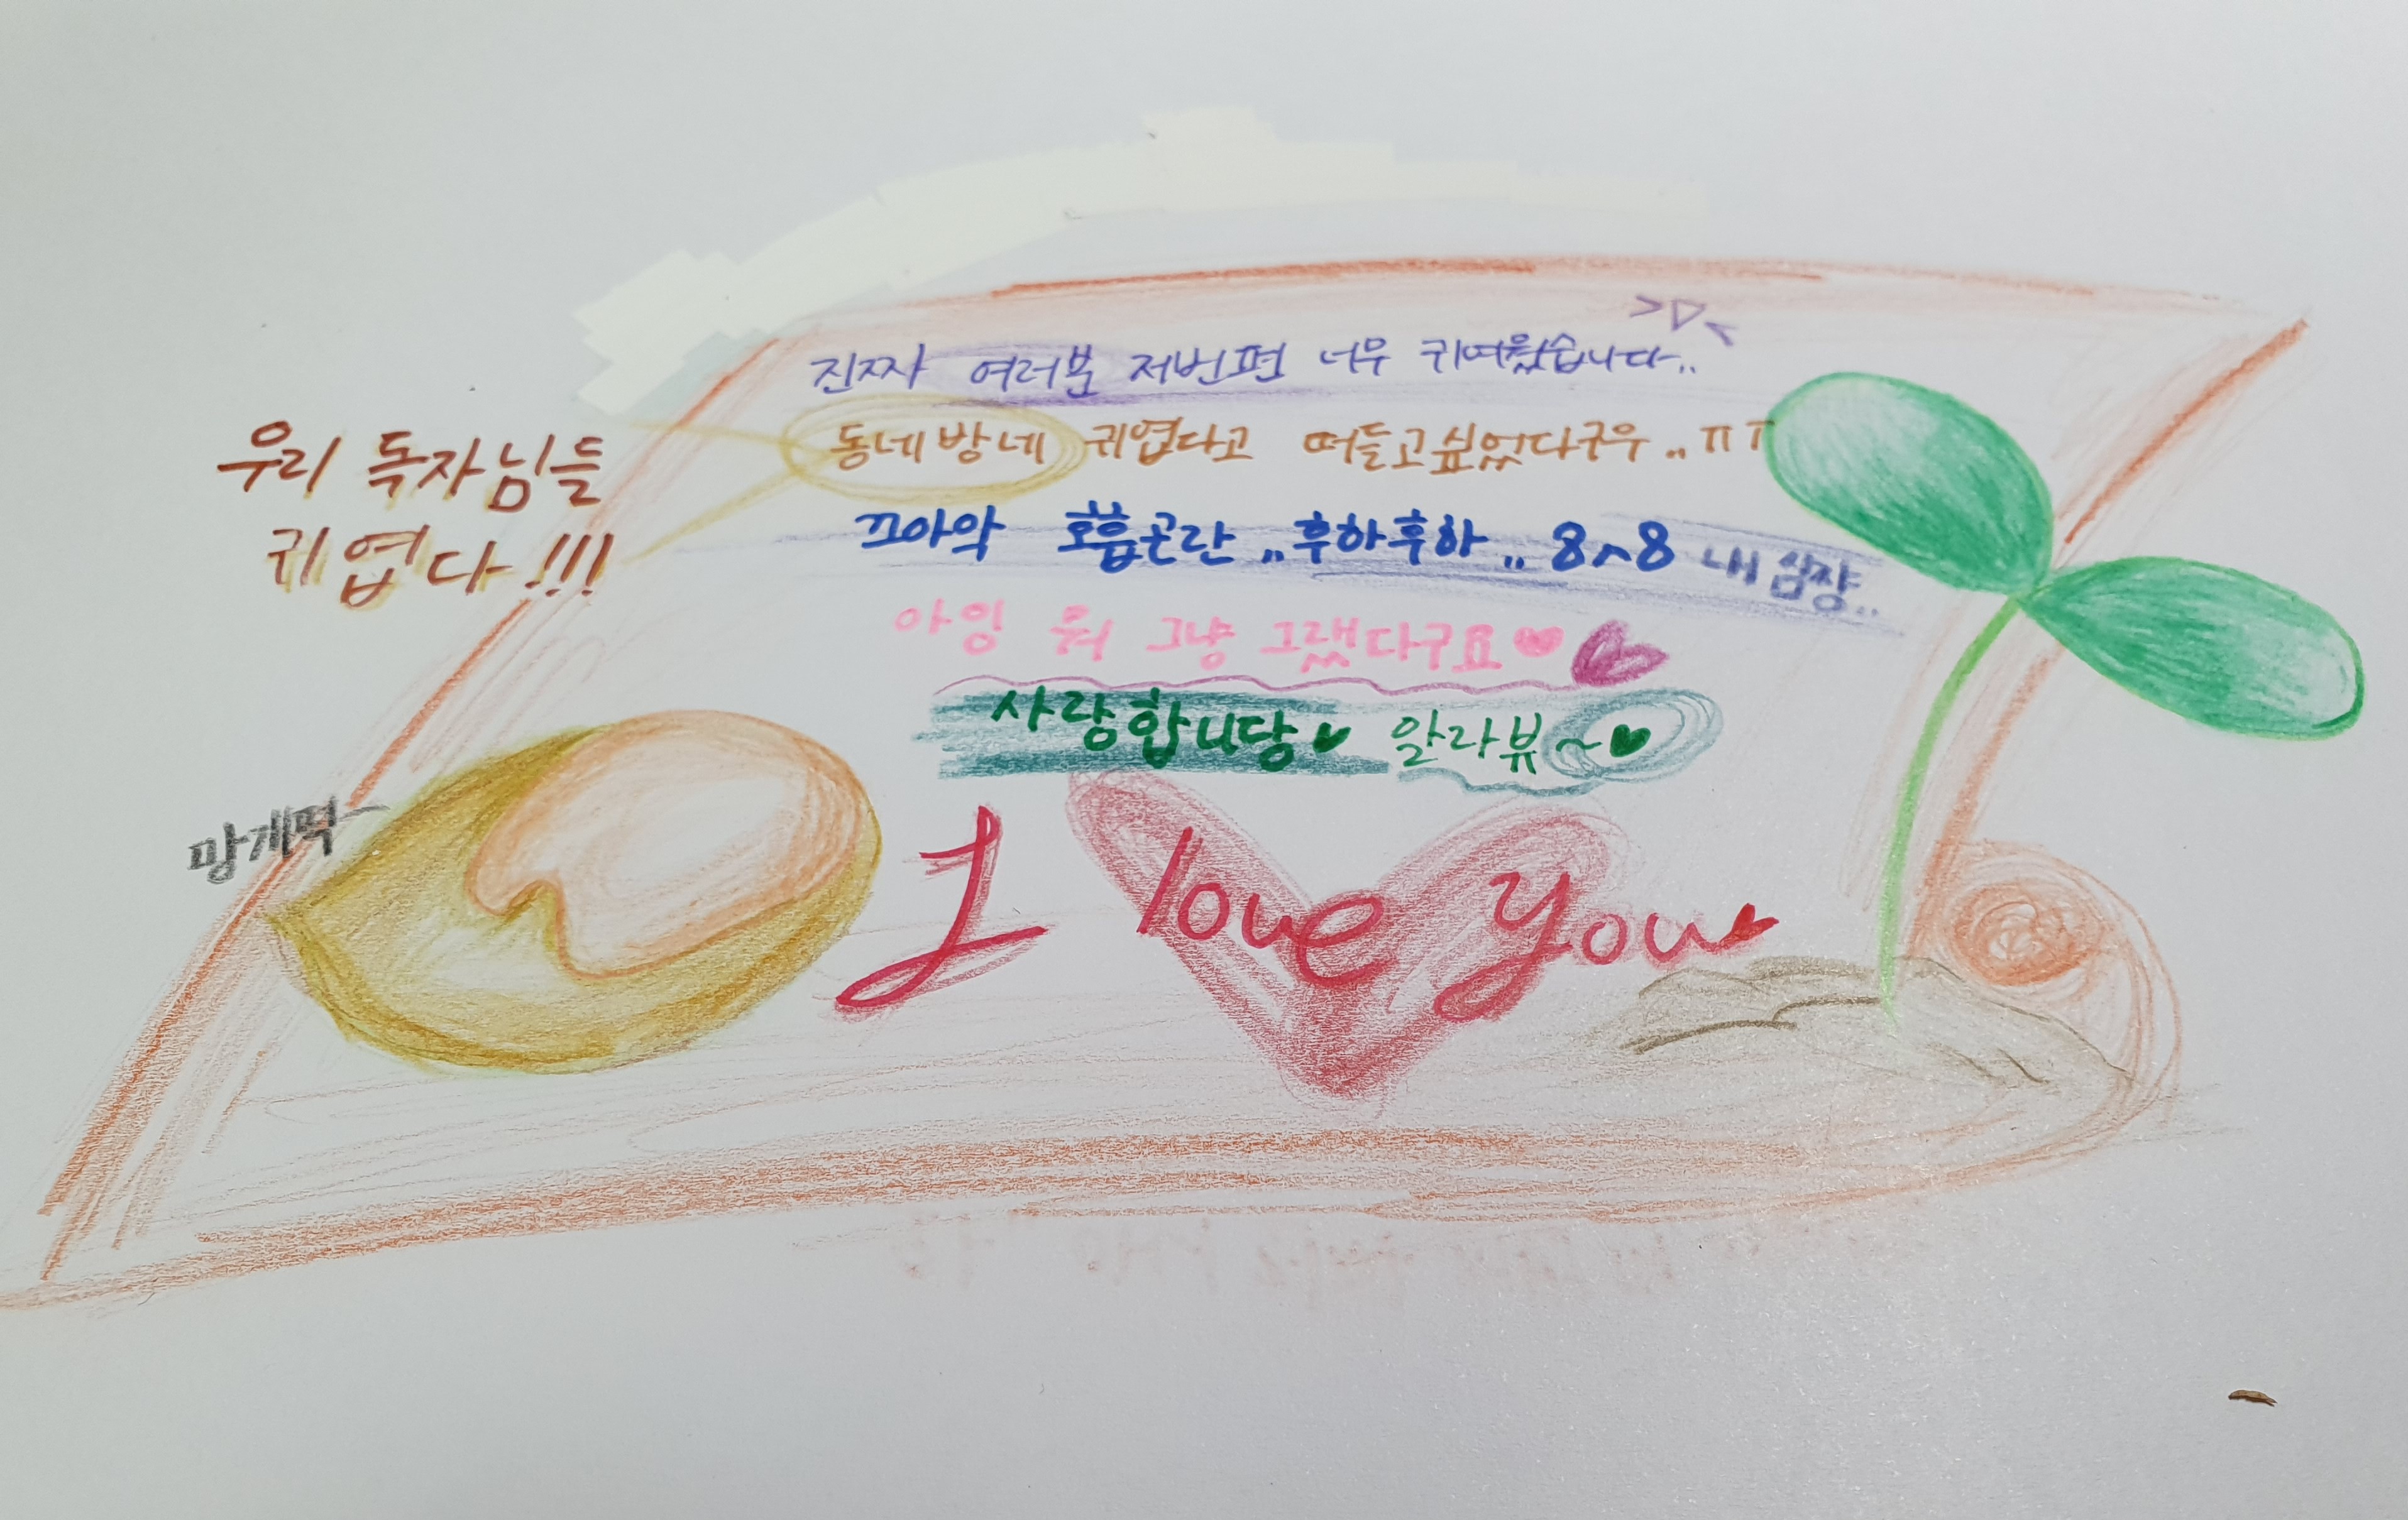 진짜 여러분 저번편 너무 귀여웠습니다..
>▽<
동네방네 귀엽다고 떠들고싶었다구우..ㅠㅠ
우리 독자님들
귀엽다!!!
끄아악 호흡곤란..후하후하..8ㅅ8 내심장..
아잉 뭐 그냥 그랬다구요♥
사랑합니당♥ 알라뷰~♥
망개떡
I love you♥